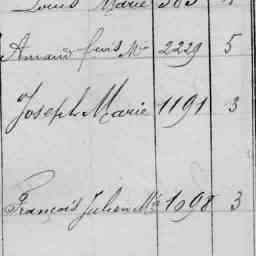 Louis Marie 303
Amand frcis Mie 2229 5
Joseph Marie 1191 3
François Julien Mie 1098 3